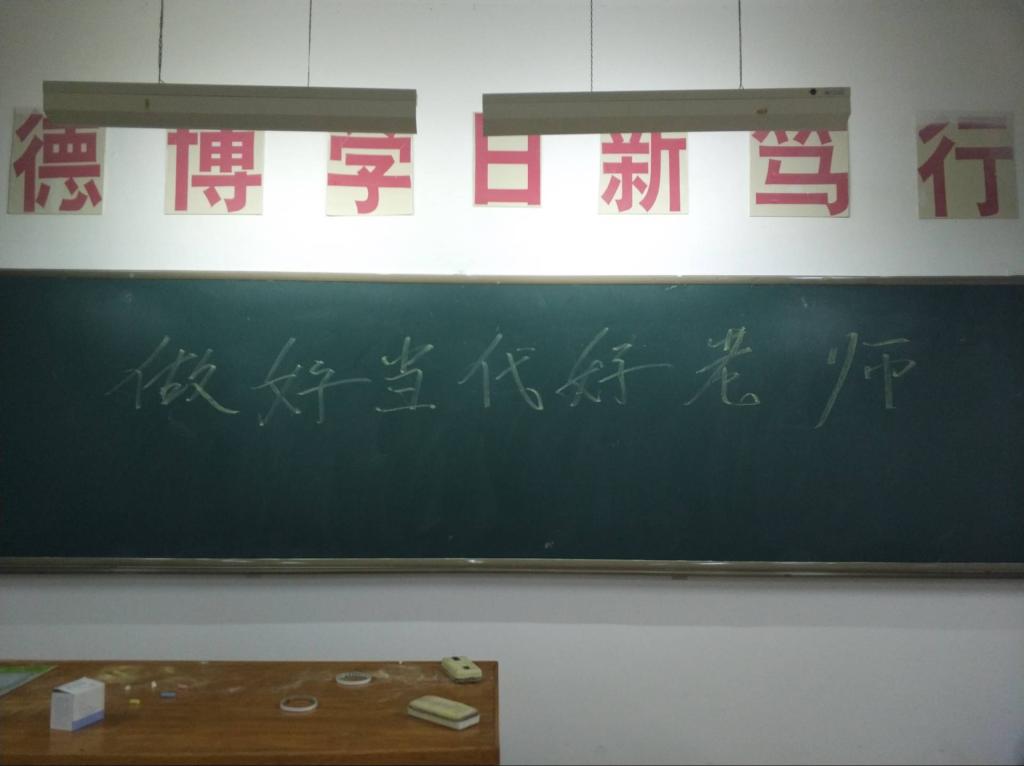 德博学日新笃行
做好当代好老师